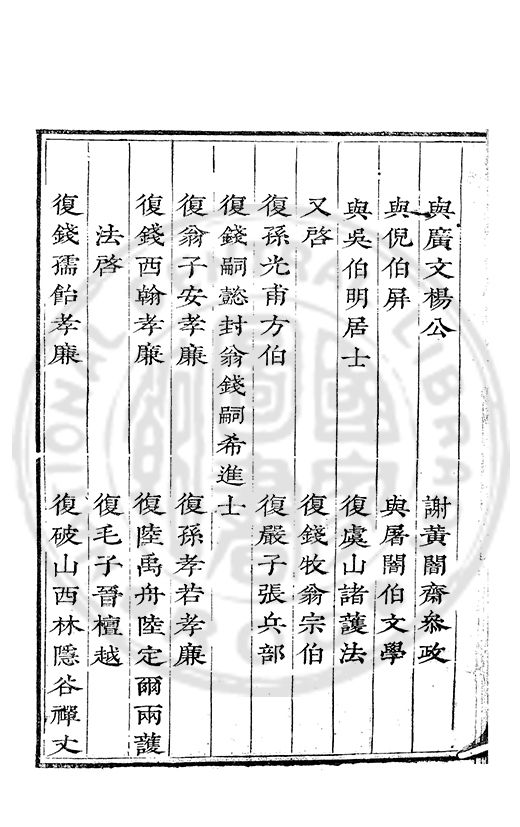 與廣文楊公　謝黃闇齋叅政
與倪伯屏　與屠闇伯文學
與吳伯明居士　復虞山諸護法
又啓　復錢牧翁宗伯
復孫光甫方伯　復嚴子張兵部
復錢嗣懿封翁錢嗣希進士
復翁子安孝廉　復孫孝若孝廉
復錢西翰孝廉　復陸禹舟陸定爾兩護
法啓　復毛子晉檀越
復錢孺飴孝廉　復破山西林隱谷禪丈